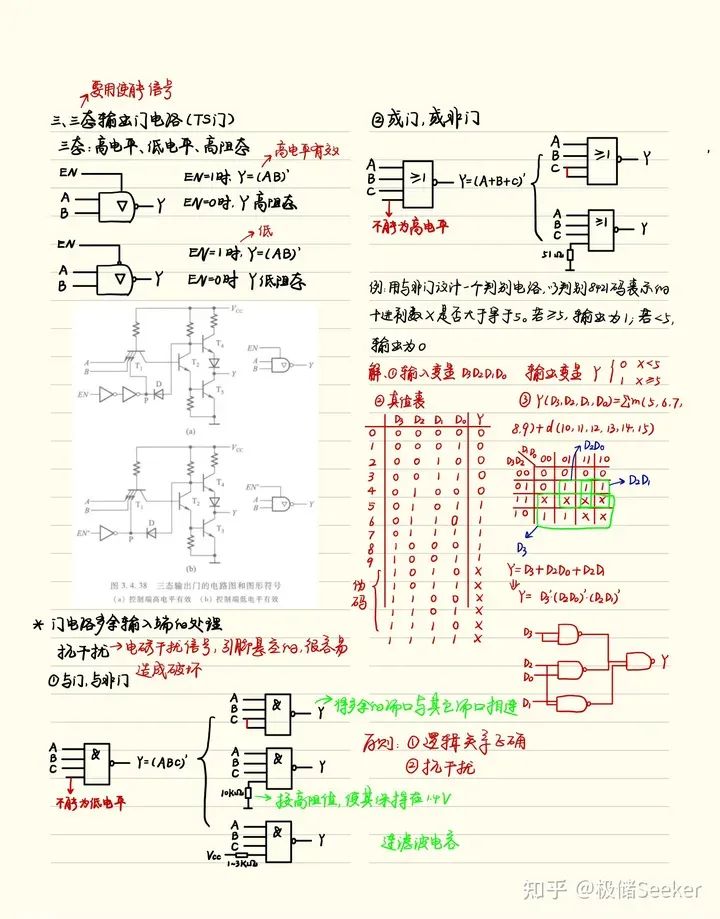 要用使能信号
三、三态输出门电路(TS门)
三态：高电平、低电平、高阻态
高电平有效
EN
A
B
Y
EN=1时 Y=(AB)'
EN=0时, Y高阻态
低
EN
A
B
Y
EN=1时, Y=(AB)'
EN=0时 Y低阻态
Vcc
A
B
T1
T2
T4
T5
EN
P
D
Y
A
B
EN
Y
(a)
Vcc
A
B
T1
T2
T4
T5
EN'
P
D
Y
A
B
EN'
Y
(b)
图 3.4.38 三态输出门的电路图和图形符号
(a) 控制端高电平有效 (b) 控制端低电平有效
* 门电路多余输入端的处理
抗干扰→电磁干扰信号, 引脚悬空的, 很容易
造成破坏
①与门, 与非门
A
B
C
&
Y=(ABC)'
不能为低电平
A
B
C
&
Y
将多余的端口与其它端口相连
A
B
C
&
Y
10KΩ
接高阻值, 使其保持在1.4V
A
B
C
&
Y
Vcc
1~3KΩ
②或门, 或非门
A
B
C
≥1
Y=(A+B+C)'
不能为高电平
A
B
C
≥1
Y
A
B
C
≥1
Y
51Ω
例: 用与非门设计一个判别电路, 以判别8421码表示的
十进制数X是否大于等于5。若≥5, 输出为1; 若<5,
输出为0
解: ①输入变量 D3D2D1D0 输出变量 Y { 0 X<5
1 X≥5
②真值表
D3 D2 D1 D0 Y
0 0 0 0 0 0
1 0 0 0 1 0
2 0 0 1 0 0
3 0 0 1 1 0
4 0 1 0 0 0
5 0 1 0 1 1
6 0 1 1 0 1
7 0 1 1 1 1
8 1 0 0 0 1
9 1 0 0 1 1
伪码
1 0 1 0 X
1 0 1 1 X
1 1 0 0 X
1 1 0 1 X
1 1 1 0 X
1 1 1 1 X
③ Y(D3,D2,D1,D0)=Σm(5,6,7,
8,9)+d(10,11,12,13,14,15)
D2D0
D1D0
D3D2
00 01 11 10
00 0 0 0 0
01 0 1 1 1
11 X X X X
10 1 1 X X
D2D1
D3
Y=D3+D2D0+D2D1
Y= D3'·(D2D0)'·(D2D1)'
D3
D2
D0
D1
Y
原则: ①逻辑关系正确
②抗干扰
连滤波电容
知乎 @极储Seeker